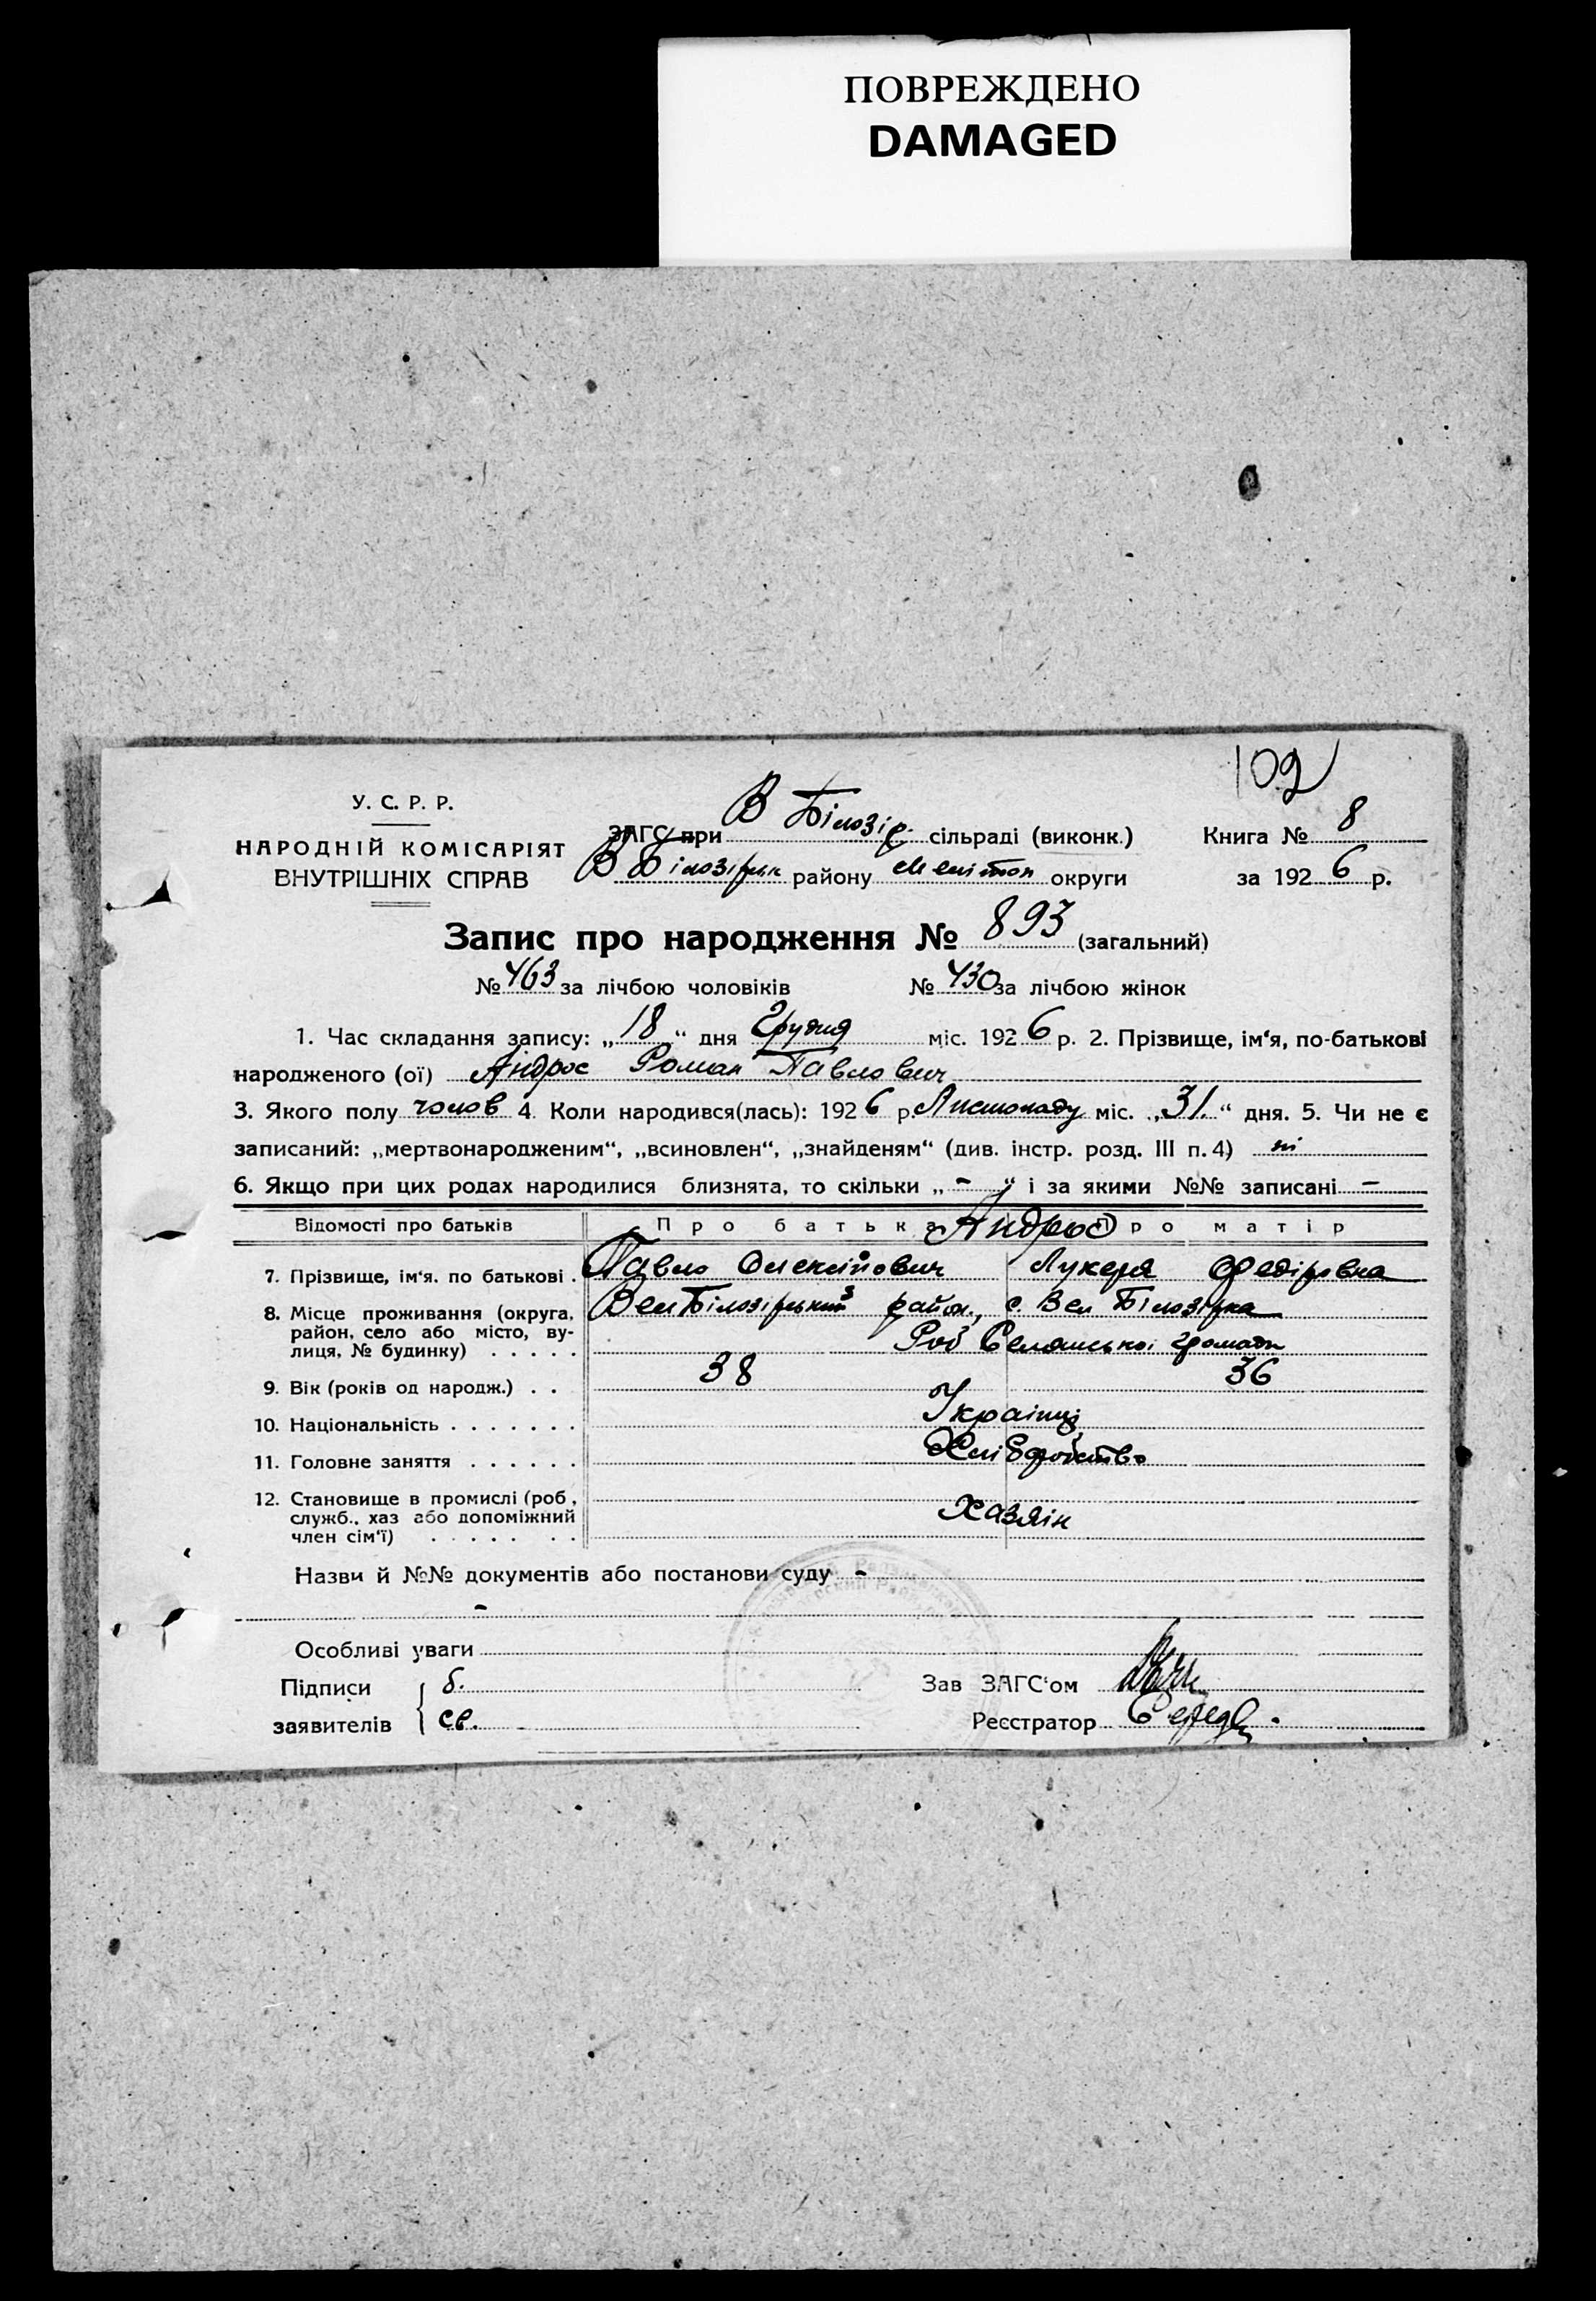 ПОВРЕЖДЕНО
DAMAGED
102
У. С. Р. Р.
НАРОДНІЙ КОМІСАРІЯТ
ВНУТРІШНІХ СПРАВ
ЗАГС при В Білозір. сільраді (виконк.)
В Білозірськ району Мелітоп округи
Книга № 8
за 1926 р.
Запис про народження № 893 (загальний)
№ 463 за лічбою чоловіків № 430 за лічбою жінок
1. Час складання запису: „18“ дня Грудня міс. 1926 р. 2. Прізвище, ім‘я, по-батькові
народженого (ої) Андрос Роман Павлович
3. Якого полу чолов 4. Коли народився(лась): 1926 р. Листопаду міс. „31“ дня. 5. Чи не є
записаний: „мертвонародженим“, „всиновлен“, „знайденям“ (див. інстр. розд. III п. 4) ні
6. Якщо при цих родах народилися близнята, то скільки „-“ і за якими №№ записані -
Відомості про батьків Про батька Андрос Про матір
7. Прізвище, ім‘я. по батькові . Павло Олексійович Лукеря Федірівна
8. Місце проживання (округа, Вел Білозірський район, с. Вел Білозірка
район, село або місто, ву-
лиця, № будинку) . . . . . Селянської громади
9. Вік (років од народж.) . . 38 36
10. Національність . . . . . . . Українці
11. Головне заняття . . . . . . Хліборобство
12. Становище в промислі (роб.,
служб., хаз або допоміжний Хазяїн
член сім‘ї) . . . . . . .
Назви й №№ документів або постанови суду -
-
Особливі уваги
Підписи б. Зав ЗАГС‘ом
заявителів св. Реєстратор Середа